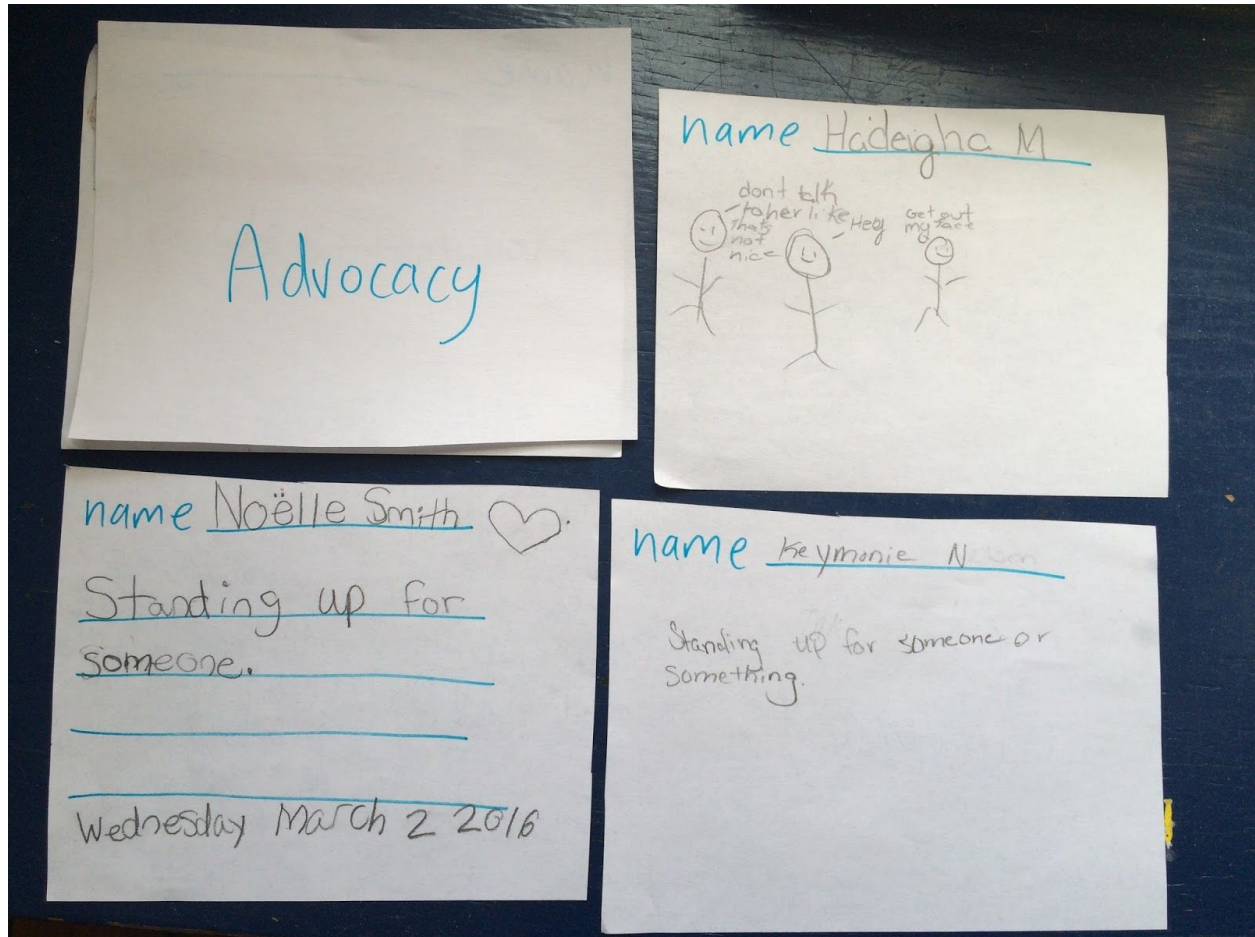 Advocacy
name Hadeigha M
don't talk
to her like
thats
not
nice
Hey
Get out
my face
name Noëlle Smith
Standing up for
someone.
Wednesday March 2 2016
name Keymonie N
Standing up for someone or
something.